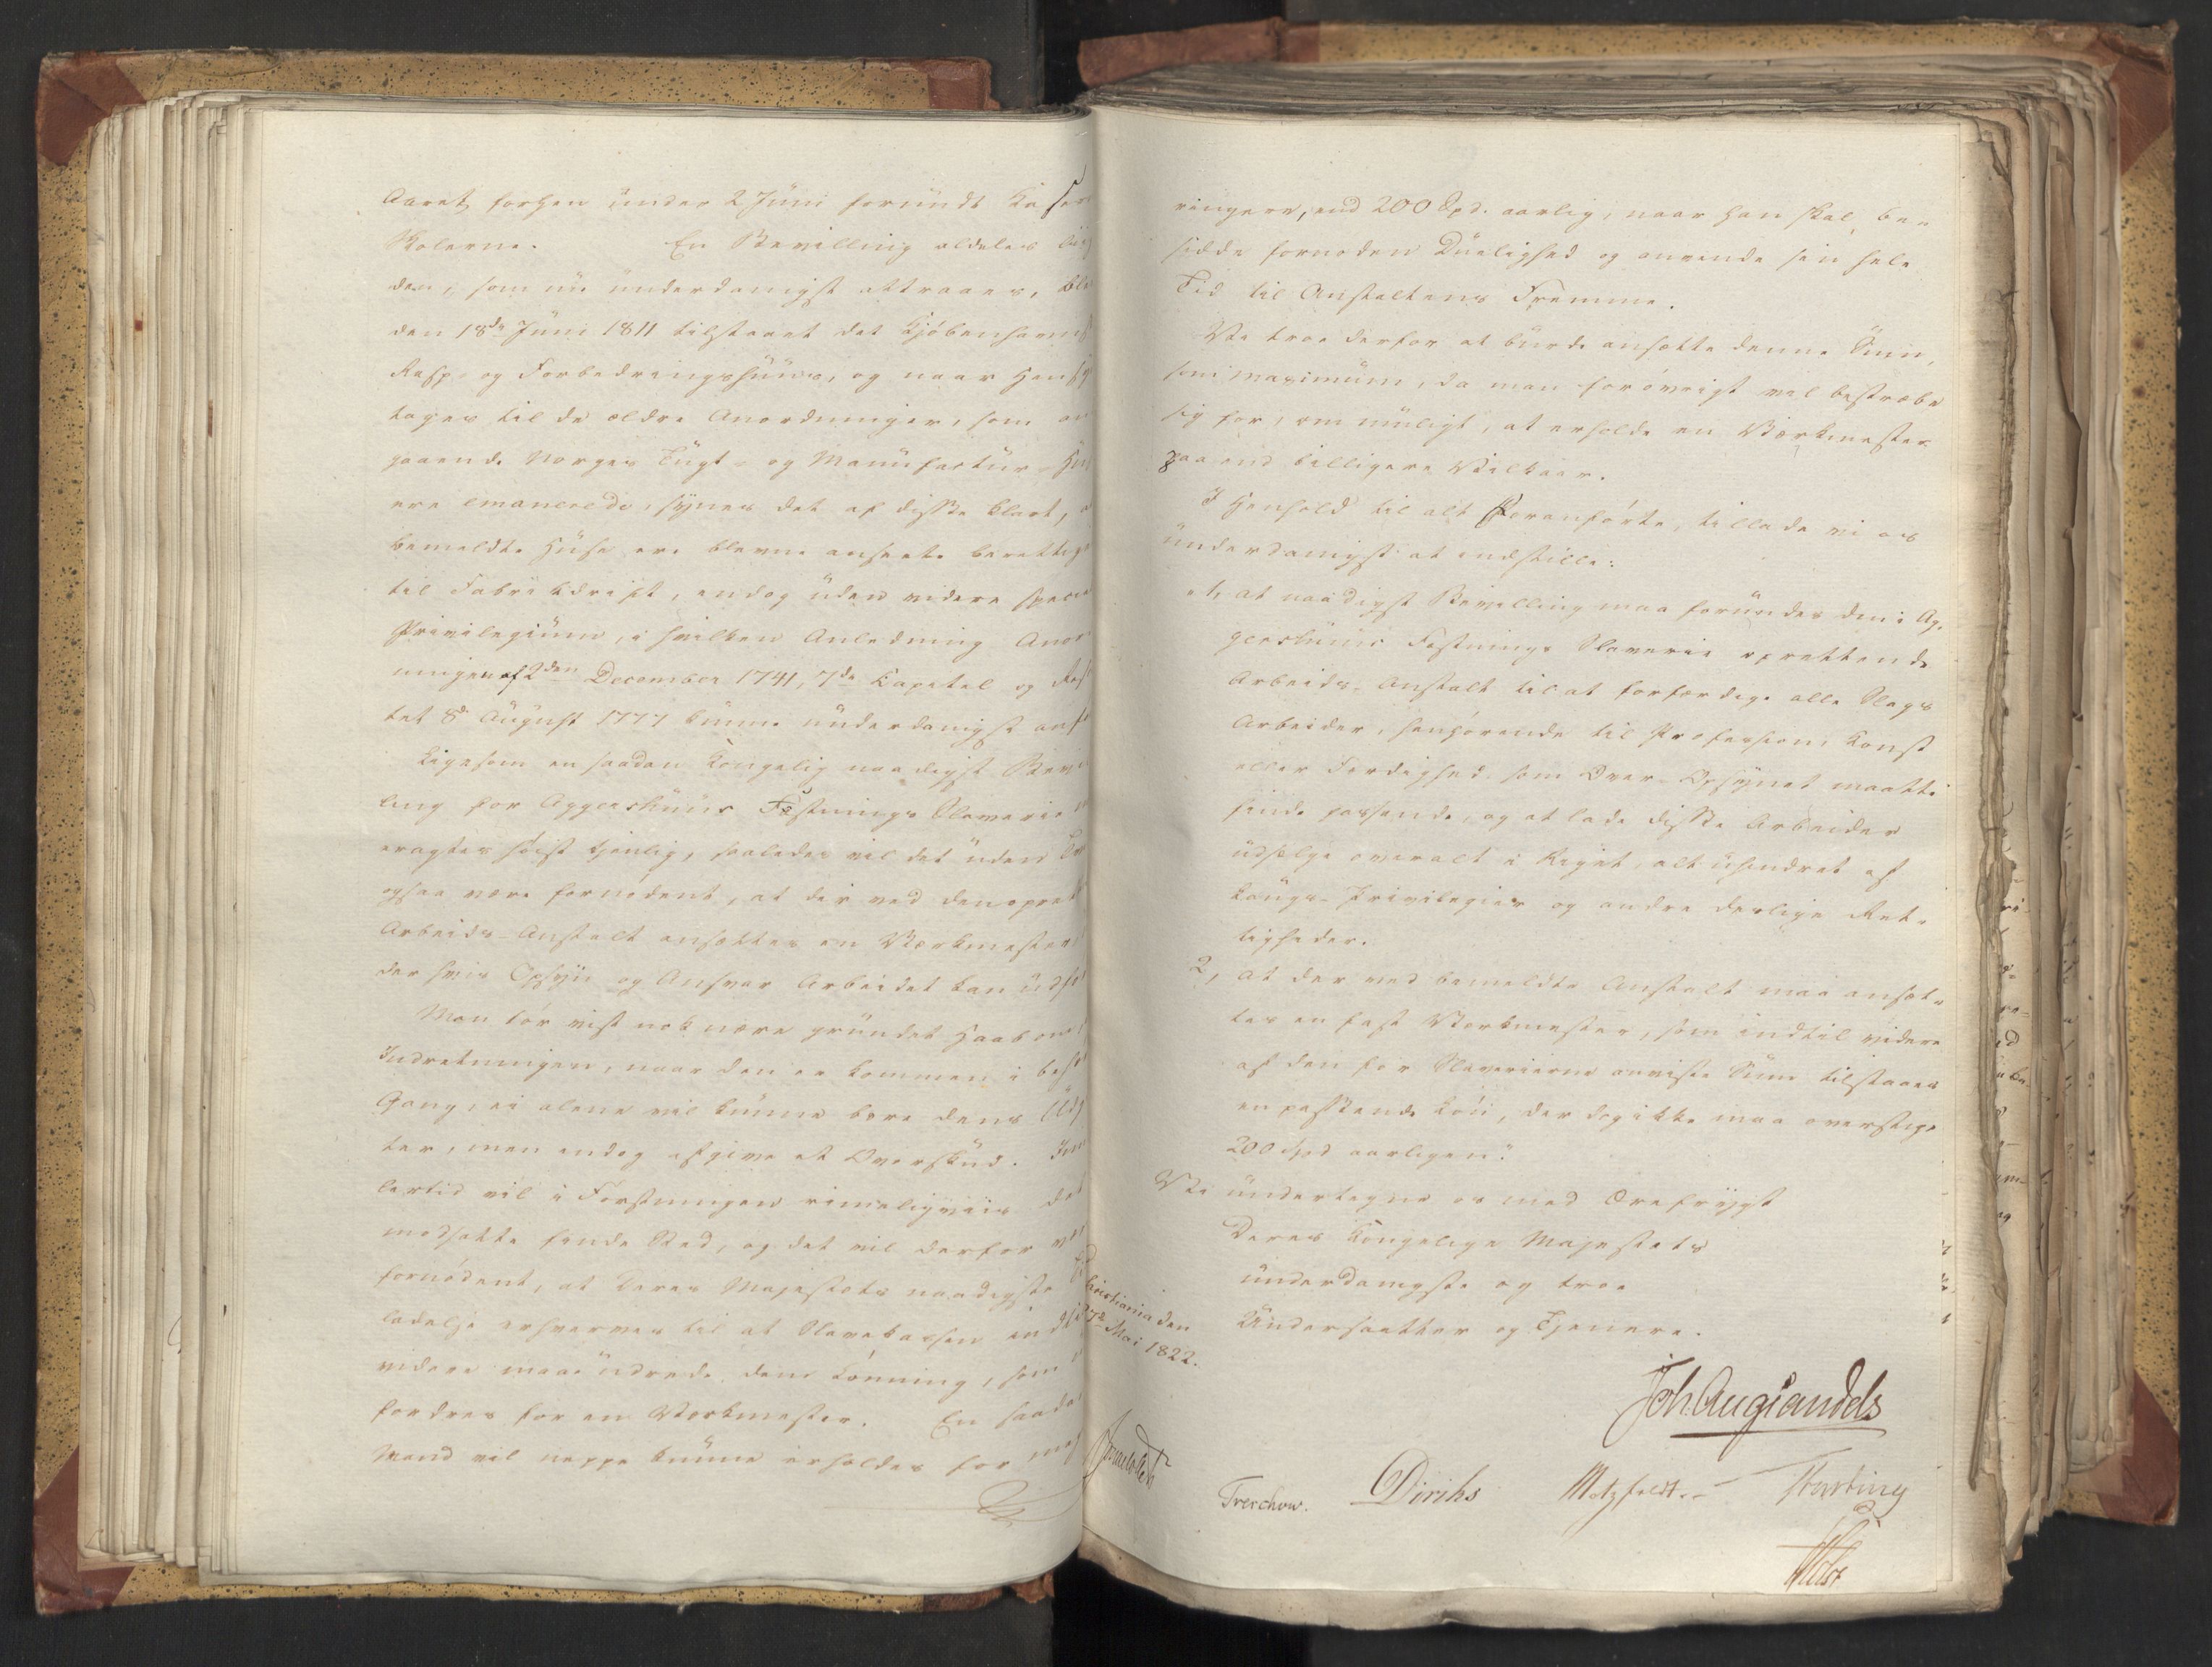 Aaret forhen under 2 Juni forundt
Skolerne. En Bevilling aldeles
den, som nu underdanigst attraaes,
den 18de Juni 1811 tilstaaet det Kjöbenhavns
Rasp- og Forbedringshuus, og naar
tages til de ældre Anordninger, som
gaaende Norges Tugt- og Manufactur-
ere emanerede, synes det af disse klart,
bemeldte Huse ere blevne ansete
til Fabrikdrift, endog uden videre
Privilegium, i hvilken Anledning
ningen af 2den December 1741, 7de Kapitel og
tet 8de August 1777 kunne underdanigst
Ligesom en saadan Kongelig naadigst
ling for Aggershuus Fæstnings Slaverie
eragtes höist tjenlig, saaledes vil det uden
ogsaa være fornödent, at der ved den
Arbeids-Anstalt ansættes en Værkmester
der hvis Opsyn og Ansvar Arbeidet kan
Man tör vist nok nære grundet Haab om
Indretningen, naar den er kommen i
Gang, ei alene vil kunne bære dens
ter, men endog afgive et Overskud.
lertid vil i Förstningen rimeligviis det
modsatte finde Sted, og det vil derfor
fornödent, at Deres Majestæts naadigste
ladelse erhverves til at Slavekassen
videre maae udrede den Lönning, som
fordres for en Værkmester. En
Mand vil neppe kunne erholdes for
ringere, end 200 Spd. aarlig, naar han skal be-
sidde fornöden Duelighed og anvende sin hele
Tid til Anstaltens Fremme.
Vi troe derfor at burde ansætte denne Sum,
som maximum, da man forövrigt vil bestræbe
sig for, om muligt, at erholde en Værkmester
paa end billigere Vilkaar.
I Henhold til alt Foranförte, tillade vi os
underdanigst at indstille:
"1, at naadigst Bevilling maa forundes den i Ag-
gershuus Fæstnings Slaverie oprettende
Arbeids-Anstalt til at forfærdige alle Slags
Arbeider, henhörende til Profession, Konst
eller Færdighed som Over-Opsynet maatte
finde passende, og at lade disse Arbeider
udsælge overalt i Riget, alt uhindret af
Laugs-Privilegier og andre deslige Ret-
tigheder.
2, at der ved bemeldte Anstalt maa ansæt-
tes en fast Værkmester, som indtil videre
af den for Slaverierne anviste Sum tilstaaes
en passende Lön, der dog ikke maa overstige
200 Spd aarligen."
Vi undertegne os med Ærefrygt
Deres Kongelige Majestæts
underdanigste og troe
Undersaatter og Tjenere.
Christiania den
27de Mai 1822.
Treschow. Diriks Motzfeldt.
Holst